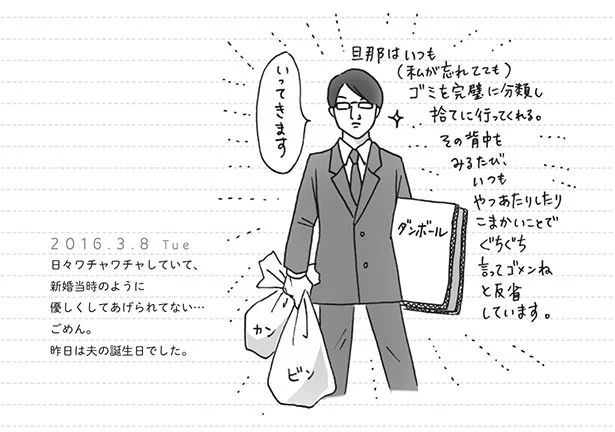 旦那はいつも
(私が忘れてても)
ゴミを完璧に分類し
捨てに行ってくれる。
その背中を
みるたび、
いつも
やつあたりしたり
こまかいことで
ぐちぐち
言ってゴメンね
と反省
しています。
いってきます
ダンボール
カン
ビン
2016.3.8 Tue
日々ワチャワチャしていて、
新婚当時のように
優しくしてあげられてない…
ごめん。
昨日は夫の誕生日でした。